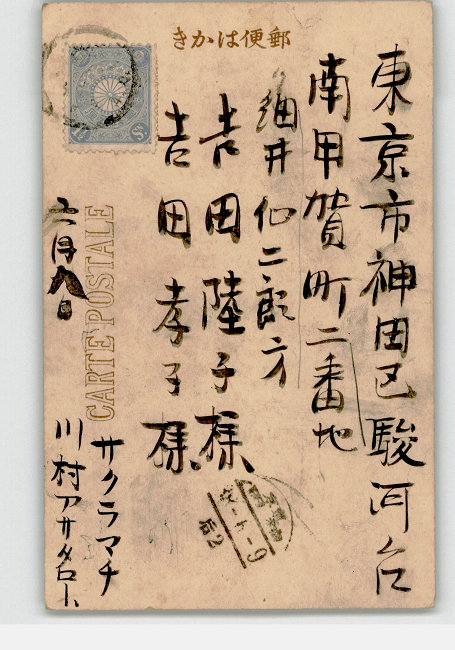 きかは便郵
東京市神田区駿河台
南甲賀町二番地
細井仙二郎方
吉田陸子様
吉田孝子様
CARTE POSTALE
六月八日
サクラマチ
川村アサ